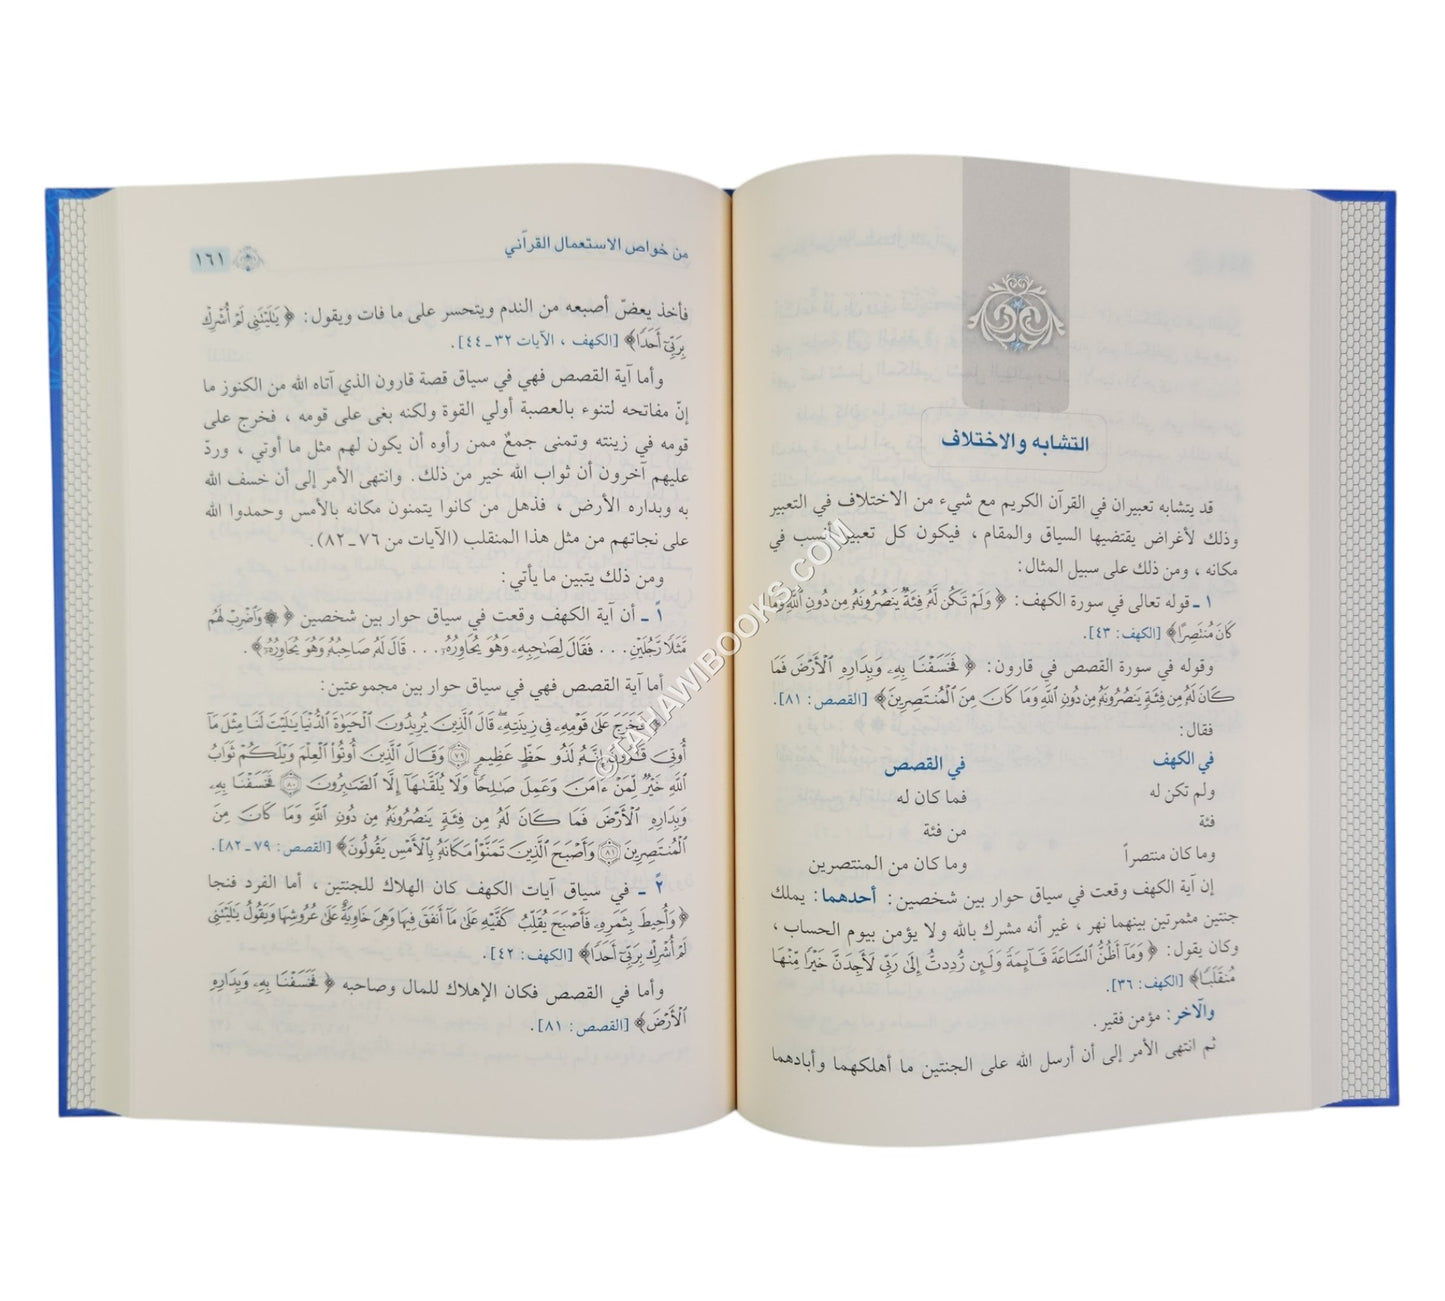 التشابه والاختلاف
قد يتشابه تعبيران في القرآن الكريم مع شيء من الاختلاف في التعبير
وذلك لأغراض يقتضيها السياق والمقام ، فيكون كل تعبير أنسب في
مكانه ، ومن ذلك على سبيل المثال:
١ ـ قوله تعالى في سورة الكهف: ﴿ وَلَمْ تَكُن لَّهُ فِئَةٌ يَنصُرُونَهُ مِن دُونِ اللَّهِ وَمَا
كَانَ مُنتَصِرًا﴾ [الكهف: ٤٣].
وقوله في سورة القصص في قارون: ﴿ فَخَسَفْنَا بِهِ وَبِدَارِهِ الْأَرْضَ فَمَا
كَانَ لَهُ مِن فِئَةٍ يَنصُرُونَهُ مِن دُونِ اللَّهِ وَمَا كَانَ مِنَ الْمُنتَصِرِينَ﴾ [القصص: ٨١].
فقال:
في الكهف في القصص
ولم تكن له فما كان له
فئة من فئة
وما كان منتصراً وما كان من المنتصرين
إن آية الكهف وقعت في سياق حوار بين شخصين: أحدهما: يملك
جنتين مثمرتين بينهما نهر، غير أنه مشرك بالله ولا يؤمن بيوم الحساب ،
وكان يقول: ﴿ وَمَا أَظُنُّ السَّاعَةَ قَائِمَةً وَلَئِن رُّدِدتُّ إِلَى رَبِّي لَأَجِدَنَّ خَيْرًا مِّنْهَا
مُنقَلَبًا﴾ [الكهف: ٣٦].
والآخر: مؤمن فقير .
ثم انتهى الأمر إلى أن أرسل الله على الجنتين ما أهلكهما وأبادهما
من خواص الاستعمال القرآني ١٦١
فأخذ يعضّ أصبعه من الندم ويتحسر على ما فات ويقول: ﴿ يَالَيْتَنِي لَمْ أُشْرِكْ
بِرَبِّي أَحَدًا﴾ [الكهف ، الآيات ٣٢ ـ ٤٤].
وأما آية القصص فهي في سياق قصة قارون الذي آتاه الله من الكنوز ما
إنّ مفاتحه لتنوء بالعصبة أولي القوة ولكنه بغى على قومه ، فخرج على
قومه في زينته وتمنى جمعٌ ممن رأوه أن يكون لهم مثل ما أوتي ، وردّ
عليهم آخرون أن ثواب الله خير من ذلك. وانتهى الأمر إلى أن خسف الله
به وبداره الأرض ، فذهل من كانوا يتمنون مكانه بالأمس وحمدوا الله
على نجاتهم من مثل هذا المنقلب (الآيات من ٧٦ ـ ٨٢).
ومن ذلك يتبين ما يأتي:
١ً ـ أن آية الكهف وقعت في سياق حوار بين شخصين ﴿ ۞ وَاضْرِبْ لَهُم
مَّثَلًا رَّجُلَيْنِ . . . فَقَالَ لِصَاحِبِهِ وَهُوَ يُحَاوِرُهُ . . . قَالَ لَهُ صَاحِبُهُ وَهُوَ يُحَاوِرُهُ﴾ .
أما آية القصص فهي في سياق حوار بين مجموعتين:
﴿ فَخَرَجَ عَلَى قَوْمِهِ فِي زِينَتِهِ قَالَ الَّذِينَ يُرِيدُونَ الْحَيَاةَ الدُّنْيَا يَالَيْتَ لَنَا مِثْلَ مَا
أُوتِيَ قَارُونُ إِنَّهُ لَذُو حَظٍّ عَظِيمٍ ۝٧٩ وَقَالَ الَّذِينَ أُوتُوا الْعِلْمَ وَيْلَكُمْ ثَوَابُ
اللَّهِ خَيْرٌ لِّمَنْ ءَامَنَ وَعَمِلَ صَالِحًا وَلَا يُلَقَّاهَا إِلَّا الصَّابِرُونَ ۝٨٠ فَخَسَفْنَا بِهِ
وَبِدَارِهِ الْأَرْضَ فَمَا كَانَ لَهُ مِن فِئَةٍ يَنصُرُونَهُ مِن دُونِ اللَّهِ وَمَا كَانَ مِنَ
الْمُنتَصِرِينَ ۝٨١ وَأَصْبَحَ الَّذِينَ تَمَنَّوْا مَكَانَهُ بِالْأَمْسِ يَقُولُونَ﴾ [القصص: ٧٩ ـ ٨٢].
٢ً ـ في سياق آيات الكهف كان الهلاك للجنتين ، أما الفرد فنجا
﴿ وَأُحِيطَ بِثَمَرِهِ فَأَصْبَحَ يُقَلِّبُ كَفَّيْهِ عَلَى مَا أَنفَقَ فِيهَا وَهِيَ خَاوِيَةٌ عَلَى عُرُوشِهَا وَيَقُولُ يَالَيْتَنِي
لَمْ أُشْرِكْ بِرَبِّي أَحَدًا﴾ [الكهف: ٤٢].
وأما في القصص فكان الإهلاك للمال وصاحبه ﴿ فَخَسَفْنَا بِهِ وَبِدَارِهِ
الْأَرْضَ﴾ [القصص: ٨١].
©TAHAWIBOOKS.COM